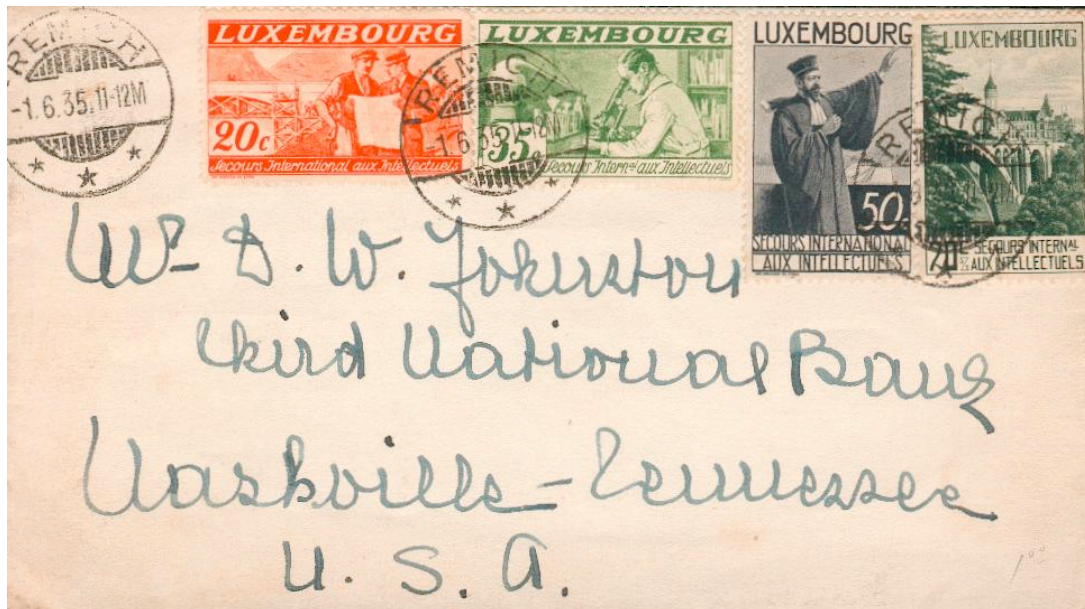 REMICH
-1.6.35.11-12M
LUXEMBOURG
20c
Secours International aux Intellectuels
REMICH
LUXEMBOURG
35c
Secours Internal aux Intellectuels
LUXEMBOURG
50c
SECOURS INTERNATIONAL
AUX INTELLECTUELS
REMICH
LUXEMBOURG
70c
SECOURS INTERNAL
AUX INTELLECTUELS
Mr D. W. Johnston
Third National Bank
Nashville - Tennessee
U. S. A.